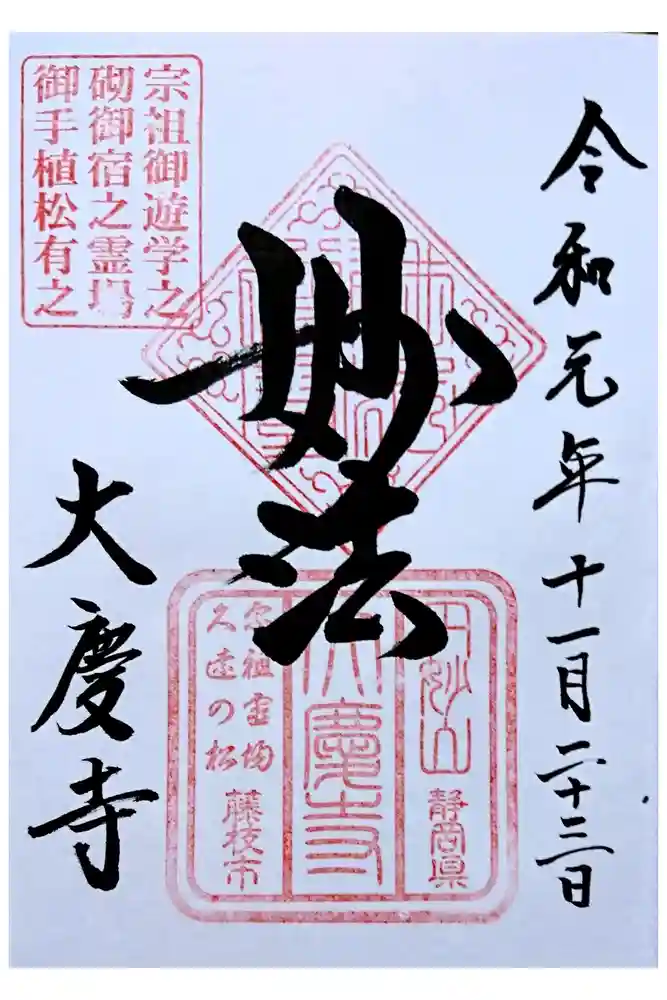 令和元年十一月二十三日
妙法
大慶寺
宗祖御遊学之
砌御宿之霊場
御手植松有之
円妙山
静岡県
大慶寺
宗祖霊場
久遠の松
藤枝市